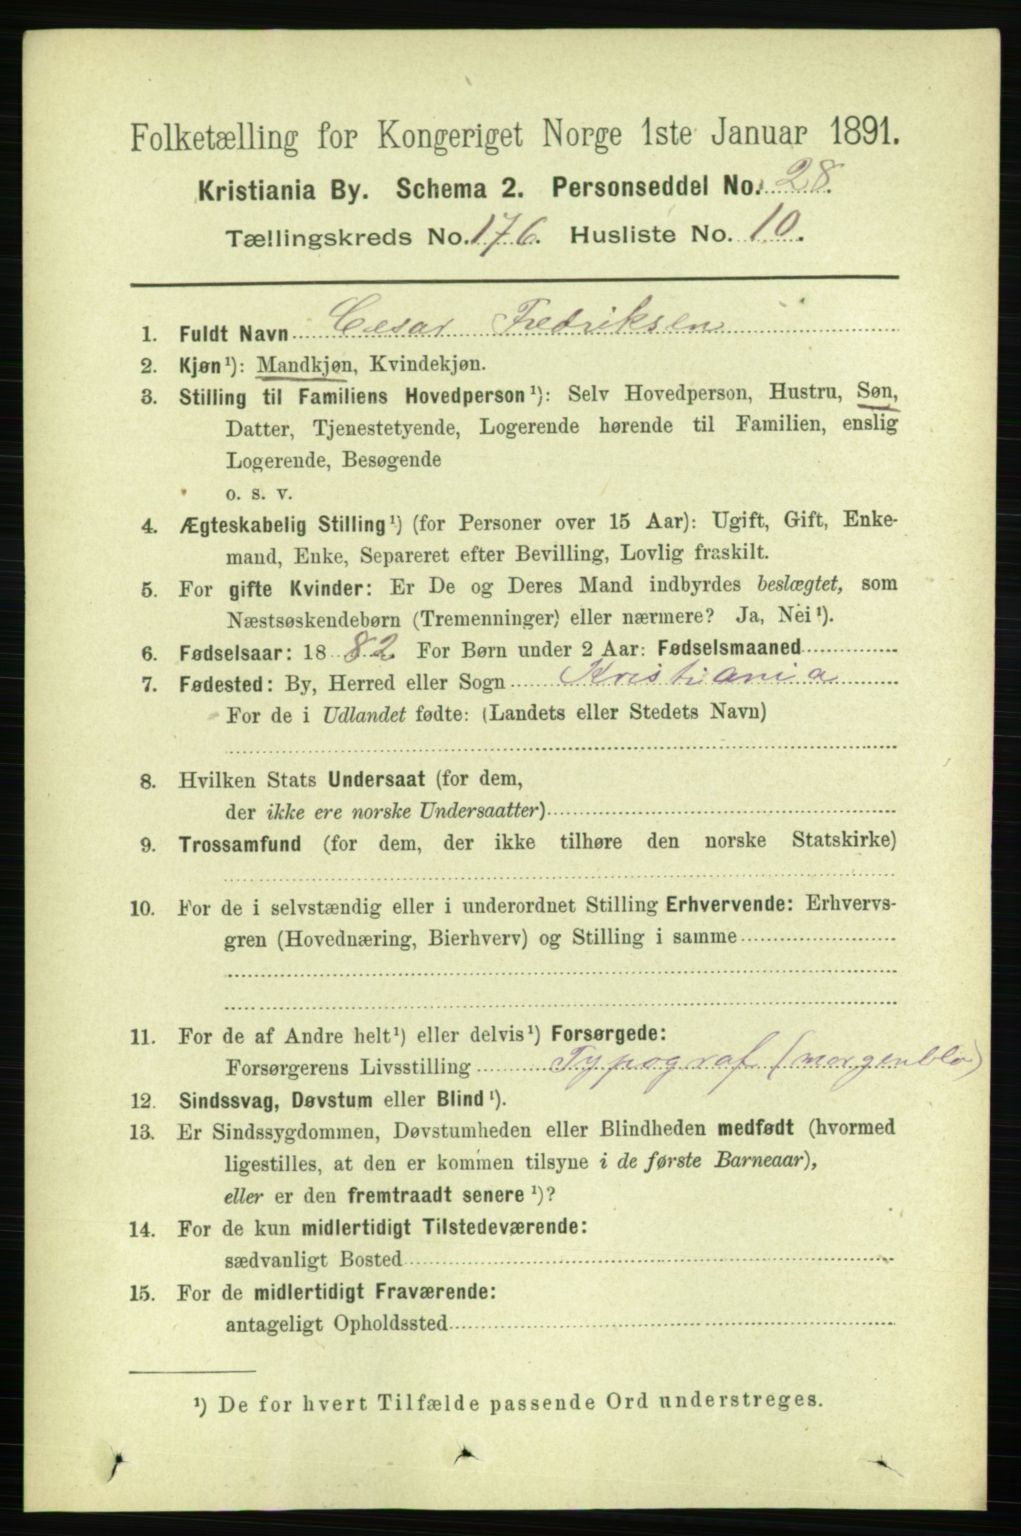 Folketælling for Kongeriget Norge 1ste Januar 1891.
Kristiania By. Schema 2. Personseddel No. 28.
Tællingskreds No. 176. Husliste No. 10.
1. Fuldt Navn Cesar Fredriksen
2. Kjøn¹): Mandkjøn, Kvindekjøn.
3. Stilling til Familiens Hovedperson¹): Selv Hovedperson, Hustru, Søn,
Datter, Tjenestetyende, Logerende hørende til Familien, enslig
Logerende, Besøgende
o. s. v.
4. Ægteskabelig Stilling¹) (for Personer over 15 Aar): Ugift, Gift, Enke-
mand, Enke, Separeret efter Bevilling, Lovlig fraskilt.
5. For gifte Kvinder: Er De og Deres Mand indbyrdes beslægtet, som
Næstsøskendebørn (Tremenninger) eller nærmere? Ja, Nei¹).
6. Fødselsaar: 1882 For Børn under 2 Aar: Fødselsmaaned
7. Fødested: By, Herred eller Sogn Kristiania
For de i Udlandet fødte: (Landets eller Stedets Navn)
8. Hvilken Stats Undersaat (for dem,
der ikke ere norske Undersaatter)
9. Trossamfund (for dem, der ikke tilhøre den norske Statskirke)
10. For de i selvstændig eller i underordnet Stilling Erhvervende: Erhvervs-
gren (Hovednæring, Bierhverv) og Stilling i samme
11. For de af Andre helt¹) eller delvis¹) Forsørgede:
Forsørgerens Livsstilling Typograf (morgenbla)
12. Sindssvag, Døvstum eller Blind¹).
13. Er Sindssygdommen, Døvstumheden eller Blindheden medfødt (hvormed
ligestilles, at den er kommen tilsyne i de første Barneaar),
eller er den fremtraadt senere¹)?
14. For de kun midlertidigt Tilstedeværende:
sædvanligt Bosted
15. For de midlertidigt Fraværende:
antageligt Opholdssted
¹) De for hvert Tilfælde passende Ord understreges.